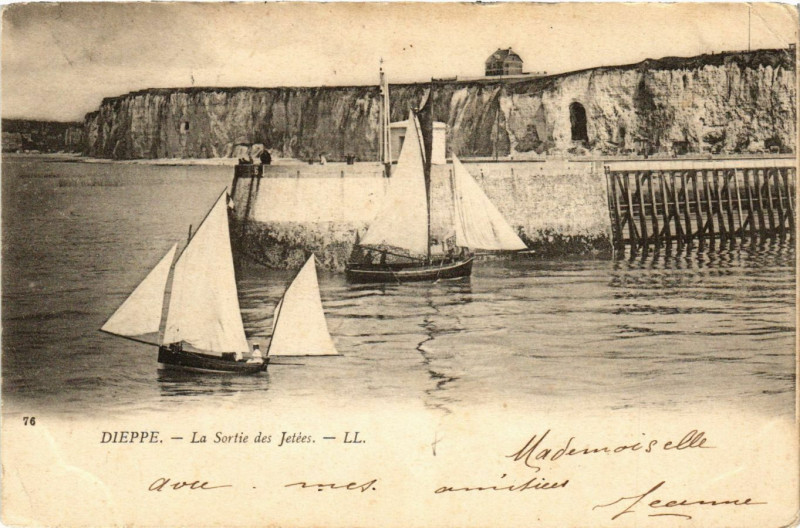 76
DIEPPE. — La Sortie des Jetées. — LL.
Mademoiselle
avec mes amitiés
Jeanne